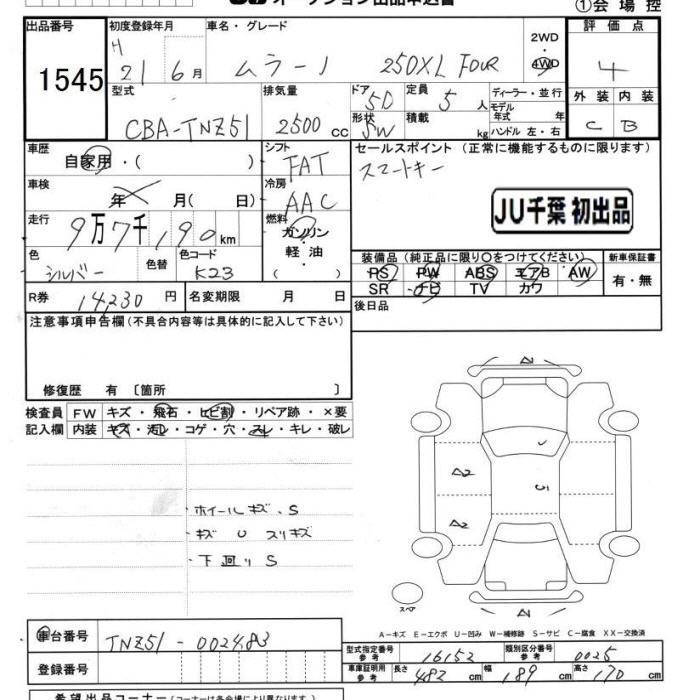 オークション出品申込書
①会場控
出品番号
1545
初度登録年月
H 21 6月
車名・グレード
ムラーノ 250XL FOUR
2WD・4WD
評価点
4
型式
CBA-TNZ51
排気量
2500cc
ドア 5D
形状 SW
定員 5人
積載 kg
ディーラー・並行
モデル年式 年
ハンドル 左・右
外装 内装
C B
車歴
自家用・( )
シフト
FAT
セールスポイント (正常に機能するものに限ります)
スマートキー
車検
年 月( 日)
冷房
AAC
JU千葉 初出品
走行
9万7千190km
燃料
ガソリン・軽油
( )
色
シルバー
色替
色コード
K23
装備品 (純正品に限り○をつけてください)
PS PW ABS エアB AW
SR ナビ TV カワ
新車保証書
有・無
R券
14,230円
名変期限 月 日
後日品
注意事項申告欄 (不具合内容等は具体的に記入して下さい)
修復歴 有 〔箇所 〕
検査員記入欄
FW キズ・飛石・ヒビ割・リペア跡・×要
内装 キズ・汚レ・コゲ・穴・スレ・キレ・破レ
・ホイールキズ、S
・キズ U スリキズ
・下廻りS
A2
A2
スペア
A-キズ E-エクボ U-凹み W-補修跡 S-サビ C-腐食 XX-交換済
車台番号
TNZ51-002483
登録番号
型式指定番号 参考 16152
類別区分番号 参考 0025
車庫証明用 参考 長さ 482cm 幅 189cm 高さ 170cm
希望出品コーナー (コーナーは各会場により異なります)